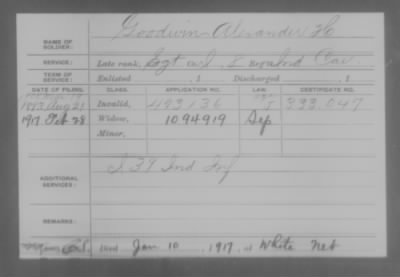 NAME OF SOLDIER: Goodwin Alexander H
SERVICE: Late rank, Sgt Co. I Regiment Cav.
TERM OF SERVICE: Enlisted , 1 Discharged , 1
DATE OF FILING. CLASS. APPLICATION NO. LAW. CERTIFICATE NO.
1883 Aug 21 Invalid, 493,136 333,047
1917 Feb 28 Widow, 1094919 Sep
Minor,
ADDITIONAL SERVICES: I 39 Ind Inf
REMARKS:
Died Jan 10 1917, at White Neb